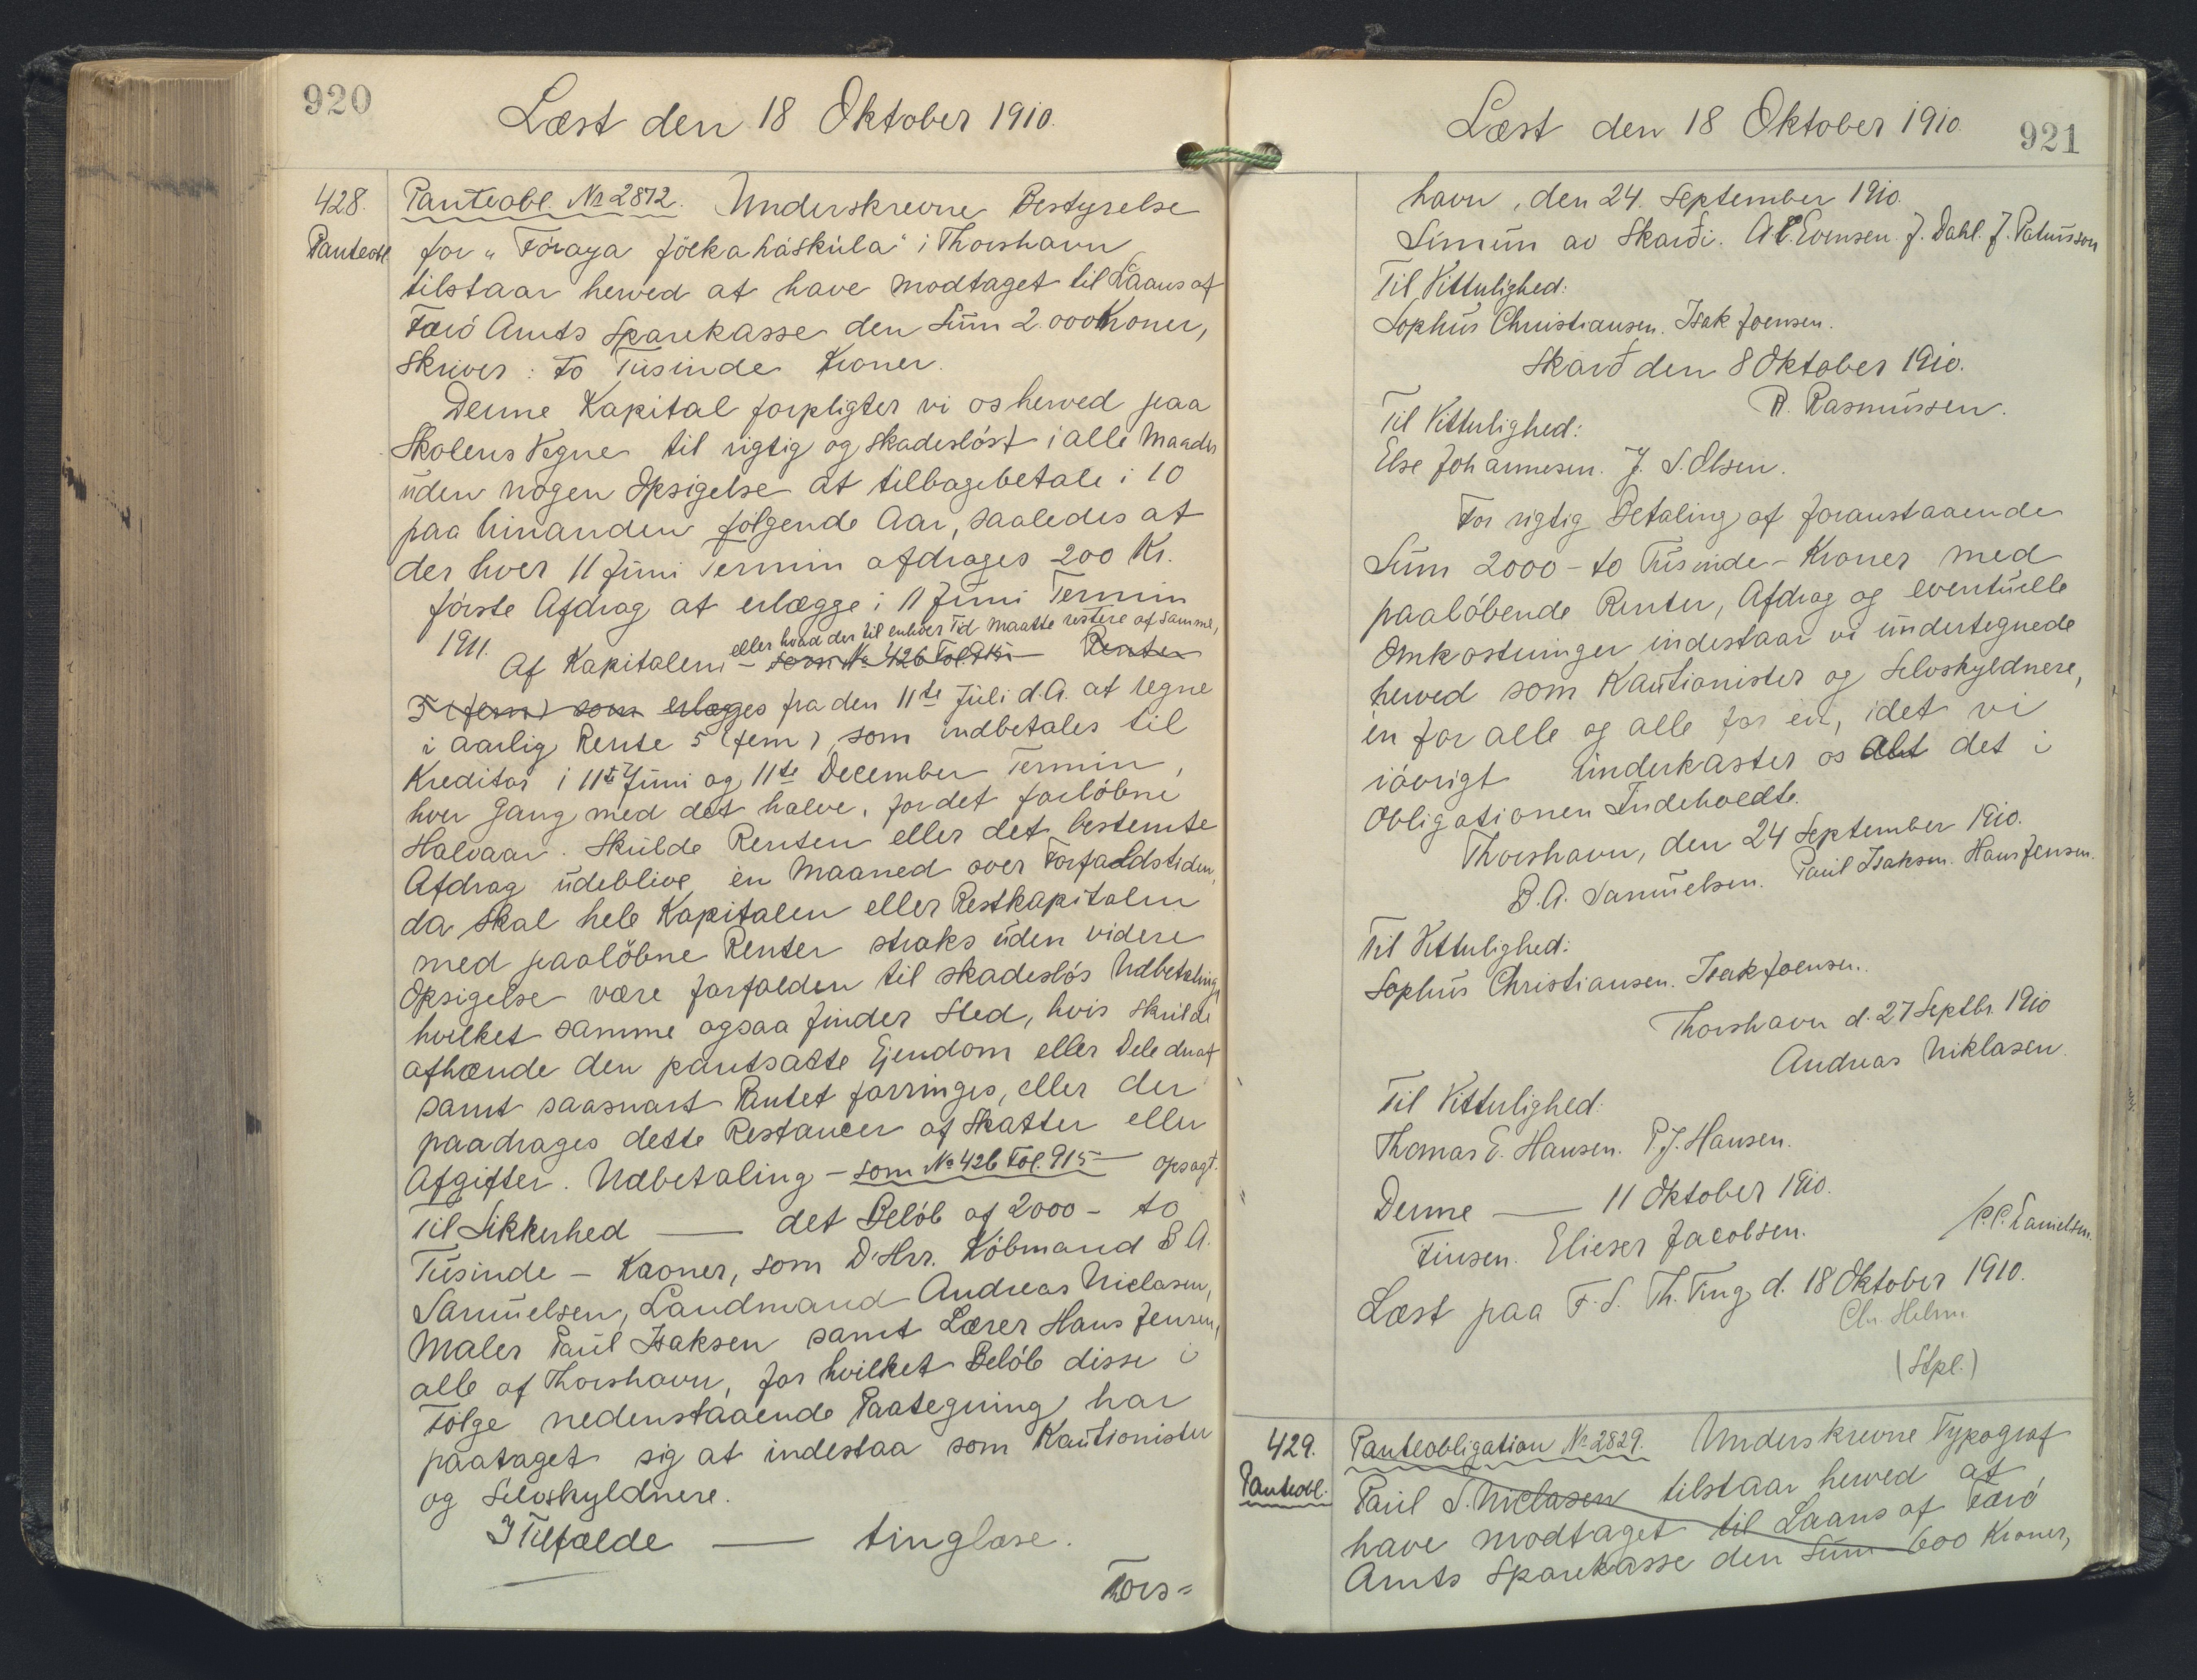 920
Læst den 18 Oktober 1910.
428.
Panteobl.
Panteobl. No 2872. Underskrevne Bestyrelse
for „Föroya fólkaháskúla" i Thorshavn
tilstaar herved at have modtaget til Laans af
Færö Amts Sparekasse den Sum 2.000 Kroner,
skriver: to Tusinde Kroner.
Denne Kapital forpligter vi os herved paa
Skolens Vegne til rigtig og skadeslöst i alle Maader
uden nogen Opsigelse at tilbagebetale i 10
paa hinanden følgende Aar, saaledes at
der hver 11 Juni Termin afdrages 200 Kr.
förste Afdrag at erlægge i 11 Juni Termin
1911.
eller hvad der til enhver Tid maatte restere af samme,
Af Kapitalen – som No 426 Fol. 915 – Renter
5 (fem) som erlægges fra den 11te Juli d.A. at regne
i aarlig Rente 5 (fem), som indbetales til
Kreditor i 11te Juni og 11te December Termin,
hver Gang med det halve, for det forlöbne
Halvaar. Skulde Renten eller det bestemte
Afdrag udeblive en Maaned over Forfaldstiden,
da skal hele Kapitalen eller Restkapitalen
med paalöbne Renter straks uden videre
Opsigelse være forfalden til skadeslös Udbetaling,
hvilket samme ogsaa finder Sted, hvis skulde
afhænde den pantsatte Ejendom eller Dele deraf
samt saasnart Pantet forringes, eller der
paadrages dette Restancer af Skatter eller
Afgifter. Udbetaling – som No 426 Fol. 915 – opsagt.
Til Sikkerhed — det Belöb af 2000 – to
Tusinde – Kroner, som D'Hrr. Köbmand B A.
Samuelsen, Landmand Andreas Niclasen,
Maler Paul Isaksen samt Lærer Hans Jensen,
alle af Thorshavn, for hvilket Belöb disse i
Fölge nedenstaaende Paategning har
paataget sig at indestaa som Kautionister
og Selvskyldnere.
I Tilfælde — tinglæse.
Thors=
Læst den 18 Oktober 1910.
921
havn, den 24. September 1910.
Símun av Skarði. A C. Evensen. J. Dahl. J. Patursson
Til Vitterlighed:
Sophus Christiansen. Isak Joensen.
Skarð den 8 Oktober 1910.
R. Rasmussen.
Til Vitterlighed:
Else Johannesen. J. S. Olsen.
For rigtig Betaling af foranstaaende
Sum 2000 – to Tusinde – Kroner med
paalöbende Renter, Afdrag og eventuelle
Omkostninger indestaar vi undertegnede
herved som Kautionister og Selvskyldnere,
en for alle og alle for en, idet vi
iövrigt underkaster os alt det i
Obligationen Indeholdte.
Thorshavn, den 24 September 1910.
B.A. Samuelsen. Paul Isaksen. Hans Jensen.
Til Vitterlighed:
Sophus Christiansen. Isak Joensen.
Thorshavn d. 27 Septbr. 1910
Andreas Niklasen.
Til Vitterlighed:
Thomas E. Hansen. P. J. Hansen.
Denne — 11 Oktober 1910.
Finsen. Elieser Jacobsen.
Danielsen.
Læst paa F. S. Th. Ting d. 18 Oktober 1910.
Chr Holm
(Stpl.)
429.
Panteobl.
Panteobligation No 2829. Underskrevne Typograf
Paul S. Niclasen tilstaar herved at
have modtaget til Laans af Færö
Amts Sparekasse den Sum 600 Kroner,